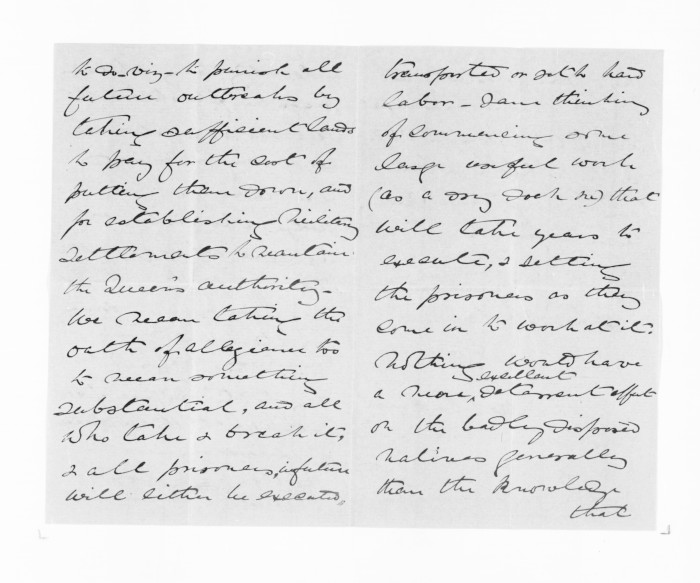 to do - viz - to punish all
future outbreaks by
taking sufficient lands
to pay for the cost of
putting them down, and
for establishing military
settlements to maintain
the Queen's authority -
We mean taking the
oath of allegiance too
to mean something
substantial, and all
who take & break it,
& all prisoners, in future
will either be executed,
transported or set to hard
labor - I am thinking
of commencing some
large useful work
(as a dry dock &c) that
will take years to
execute, & setting
the prisoners as they
come in to work at it.
Nothing would have
excellent
a more, deterrent effect
on the badly disposed
natives generally
than the knowledge
that